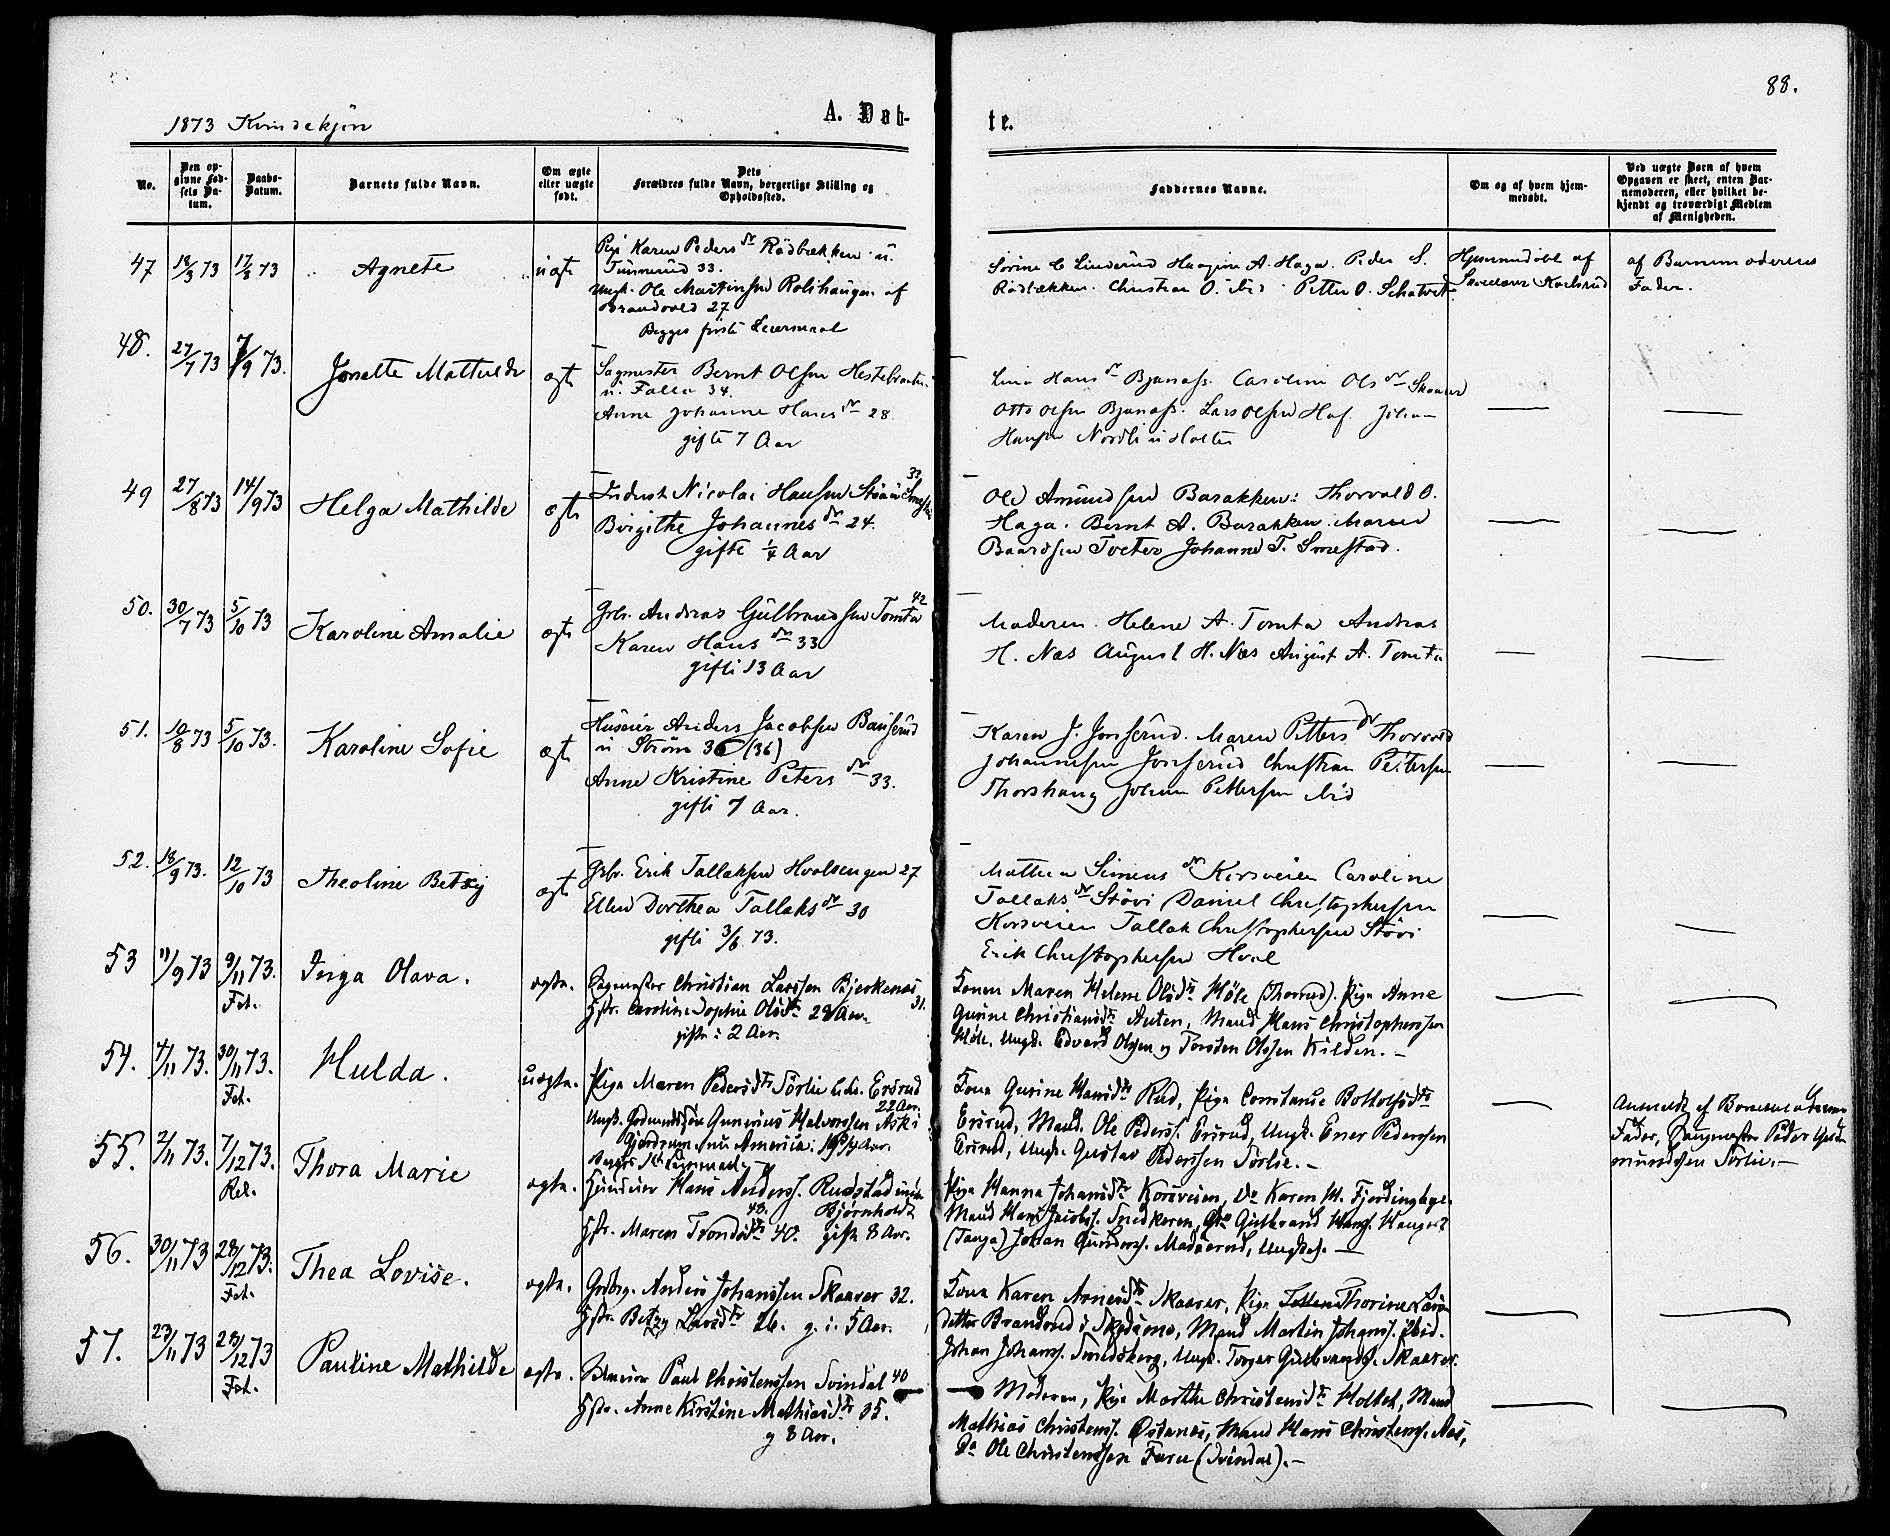 88.
1873 Kvindekjøn
A. Døb-
te.
No.
Den op-
givne Fød-
sels Da-
tum.
Daabs-
Datum.
Barnets fulde Navn.
Om ægte
eller uægte
født.
Dets
Forældres fulde Navn, borgerlige Stilling og
Opholdssted.
Faddernes Navne.
Om og af hvem hjem-
medøbt.
Ved uægte Børn af hvem
Opgaven er skeet, enten Bar-
nemoderen, eller hvilket be-
kjendt og troværdigt Medlem
af Menigheden.
47 18/3 73 17/8 73 Agnete uægte
Pige Karen Peders dr Rödbækken u.
Tünnerud 33.
Ungk. Ole Martinsen Rolshaugen af
Brandvold 27
Begges første Leiermaal
Sörine C Linderud Haagine A. Haga. Peder S.
Rödbækken. Christian O. ibid. Petter O.
Hjemmedöbt af
Karlsrud
af Barnemoderens
Fader.
48. 27/7 73 7/9 73. Jonette Mathilde ægte
Sagmester Bernt Olsen Hestebraaten
u. Falla 34.
Anne Johanne Hans dr 28.
gifte 7 Aar
Lina Hans dr Bjanæss. Caroline Ols dr Skaarer
Otto Olsen Bjanæss. Lars Olsen Hof. Johan
Hansen Nordli u Holter
49 27/8 73 14/9 73 Helga Mathilde ægte
Inderst Nicolai Hansen Stöa u Smestad 33
Birgithe Johannes dr 24.
gifte 1/4 Aar
Ole Amundsen Barakken. Thorvald O.
Haga. Bernt A. Barakken. Maren
Baardsen Toeter Johanne T. Smestad.
50. 30/7 73 5/10 73 Karoline Amalie ægte
Grbr. Andreas Gulbrandsen Tomta 42
Karen Hans dr 33
gifte 13 Aar
Moderen. Helene A. Tomta Andreas
H. Næs August H. Næs August A. Tomta
51. 10/8 73 5/10 73. Karoline Sofie ægte
Husmer Anders Jacobsen Banserud
u Ström 36 (36)
Anne Kristine Peters dr 33.
gifte 7 Aar.
Karen J. Jonserud. Maren Petters dr Thorvald
Johannesen Jonserud Christian Pettersen
Thorshaug Johan Pettersen ibid
52. 18/9 73. 12/10 73 Theoline Betzy ægte
Grbr. Erik Tallaksen Hvalsengen 27
Ellen Dorthea Tallaks dr 30
gifte 3/6 73.
Mathea Simens dr Korsveien Caroline
Tallaks dr Stövi Daniel Christophersen
Korsveien Tallak Christophersen Stövi
Erik Christophersen Hval
53 11/9 73 9/11 73. Fet. Inga Olava. ægte.
Sagmester Christian Larssen Bjerkenæs 31.
Hstr. Caroline Sophie Olsdtr 28 Aar.
gifte i 2 Aar.
Konen Maren Helene Olsdtr Höie (Thorrud). Pige Anne
Gurine Christiansdtr Auten, Mand Hans Christophersen
Höie, Ungk. Edvard Olsen og Torsten Olsen Kilden.
54. 4/11 73. 30/11 73. Fet. Hulda. uægte.
Pige Maren Pedersdtr Sörlie u. Ersrud
22 Aar.
Ungk. Gunerius Halvorsen Aski
Gjerdrum, nu Amerika. 19 3/4 Aar.
Begges 1ste Leiermaal.
Kone Gurine Hansdtr Rud, Pige Constanse Bottolfsdtr
Ersrud, Mand Ole Peders. Ersrud, Ungk. Ener Pedersen
Ersrud, Ungk. Gustav Pederssen Sörlie.
Anmeldt af Barnemoderens
Fader, Sangmester Peder
mundsen Sörlie.
55. 2/11 73. 7/12 73. Thora Marie ægte.
Husmer Hans Anderss. Rustad under
Bjørnholdt
Hstr. Maren Trondsdtr 40. gift 8 Aar.
Pige Hanna Johansdtr Korsveien, Do Karen M. Fjordinghage
Mand Hans Jacobs. Snekkeren, Do Gulbrand Hans. Hauger
(Tangа) Johan Gunders. Madserud, Ungkar.
56. 30/11 73 28/12 73. Fet. Thea Lovise. ægte.
Grbrg. Anders Johanssen Skaarer 32.
Hstr. Betzy Larsdtr 26. g. i 5 Aar.
Kone Karen Arnesdtr Skaarer, Pige Thorine Lars
datter Brandrud i Skedsmo, Mand Martin Johans. ibid.
Johan Johans. Smedsberg, Ungk. Torger Gulbrands. Skaarer.
57. 23/11 73 28/12 73 Fet. Pauline Mathilde ægte.
Paul Christenssen Svindal 40
Hstr. Anne Kirstine Mathisdtr 35.
g 8 Aar.
Moderen, Pige Marthe Christensdtr Holtet, Mand
Mathias Christens. Östanes, Mand Hans Christens. Næs,
Do Ole Christenssen Furu (Svindal).